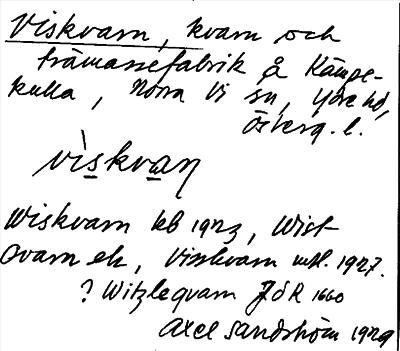 Viskvarn, kvarn och
trämassefabrik å Kämpe-
kulla, Norra Vi sn, Ydre hd,
Österg. l.
viskvaɳ
Wiskvarn kb 1923, Wist
qvarn ek, Visskvarn 1927.
? Witzleqvarn JöR 1660
Axel Sandström 1929